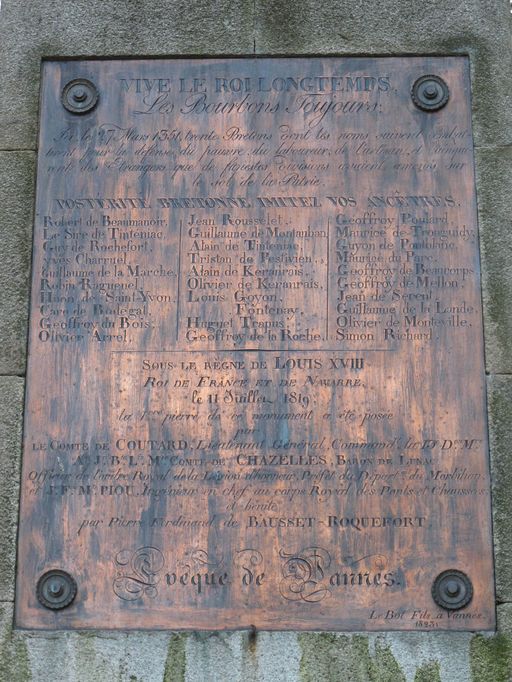 VIVE LE ROI LONGTEMPS,
Les Bourbons Toujours;
Ici le 27 Mars 1351 trente Bretons dont les noms suivent combat-
tirent pour la défense du pauvre, du laboureur, de l'artisan, et vainqui-
rent des Étrangers que de funestes divisions avaient amenés sur
le Sol de la Patrie.
POSTÉRITÉ BRETONNE IMITEZ VOS ANCÊTRES.
Robert de Beaumanoir.
Le Sire de Tinteniac.
Guy de Rochefort.
Yves Charruel.
Guillaume de la Marche.
Robin Raguenel.
Huon de Saint-Yvon.
Caro de Bodégat.
Geoffroy du Bois.
Olivier Arrel.
Jean Rousselet.
Guillaume de Montauban.
Alain de Tinteniac.
Tristan de Pestivien.
Alain de Keranrais.
Olivier de Keranrais.
Louis Goyon.
Fontenay.
Huguet Trapus.
Geoffroy de la Roche.
Geoffroy Poulard.
Maurice de Tronguidy.
Guyon de Pontblanc.
Maurice du Parc.
Geoffroy de Beaucorps.
Geoffroy de Mellon.
Jean de Serent.
Guillaume de la Lande.
Olivier de Monteville.
Simon Richard.
SOUS LE RÈGNE DE LOUIS XVIII
ROI DE FRANCE ET DE NAVARRE,
le 11 Juillet 1819,
la 1ère pierre de ce monument a été posée
par
LE COMTE DE COUTARD, Lieutenant Général, Commandt la 13 Don Mre
A. J. Bte L. Mis COMTE DE CHAZELLES, BARON DE LUNAC
Officier de l'ordre Royal de la Légion d'honneur, Préfet du Départt du Morbihan.
et J. F. M. PIOU, Ingénieur en chef au corps Royal des Ponts et Chaussées
et bénite
par Pierre Ferdinand de BAUSSET-ROQUEFORT,
Evêque de Vannes.
Le Bot Fils à Vannes
1823